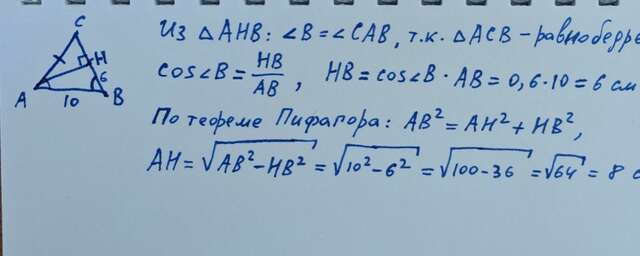 C
H
6
A
10
B
Из △AHB: ∠B=∠CAB, т.к. △ACB-равнобедре
cos∠B = HB/AB, HB=cos∠B·AB=0,6·10=6 см
По теореме Пифагора: AB²=AH²+HB²,
AH=√AB²-HB² = √10²-6² = √100-36 = √64 = 8 с